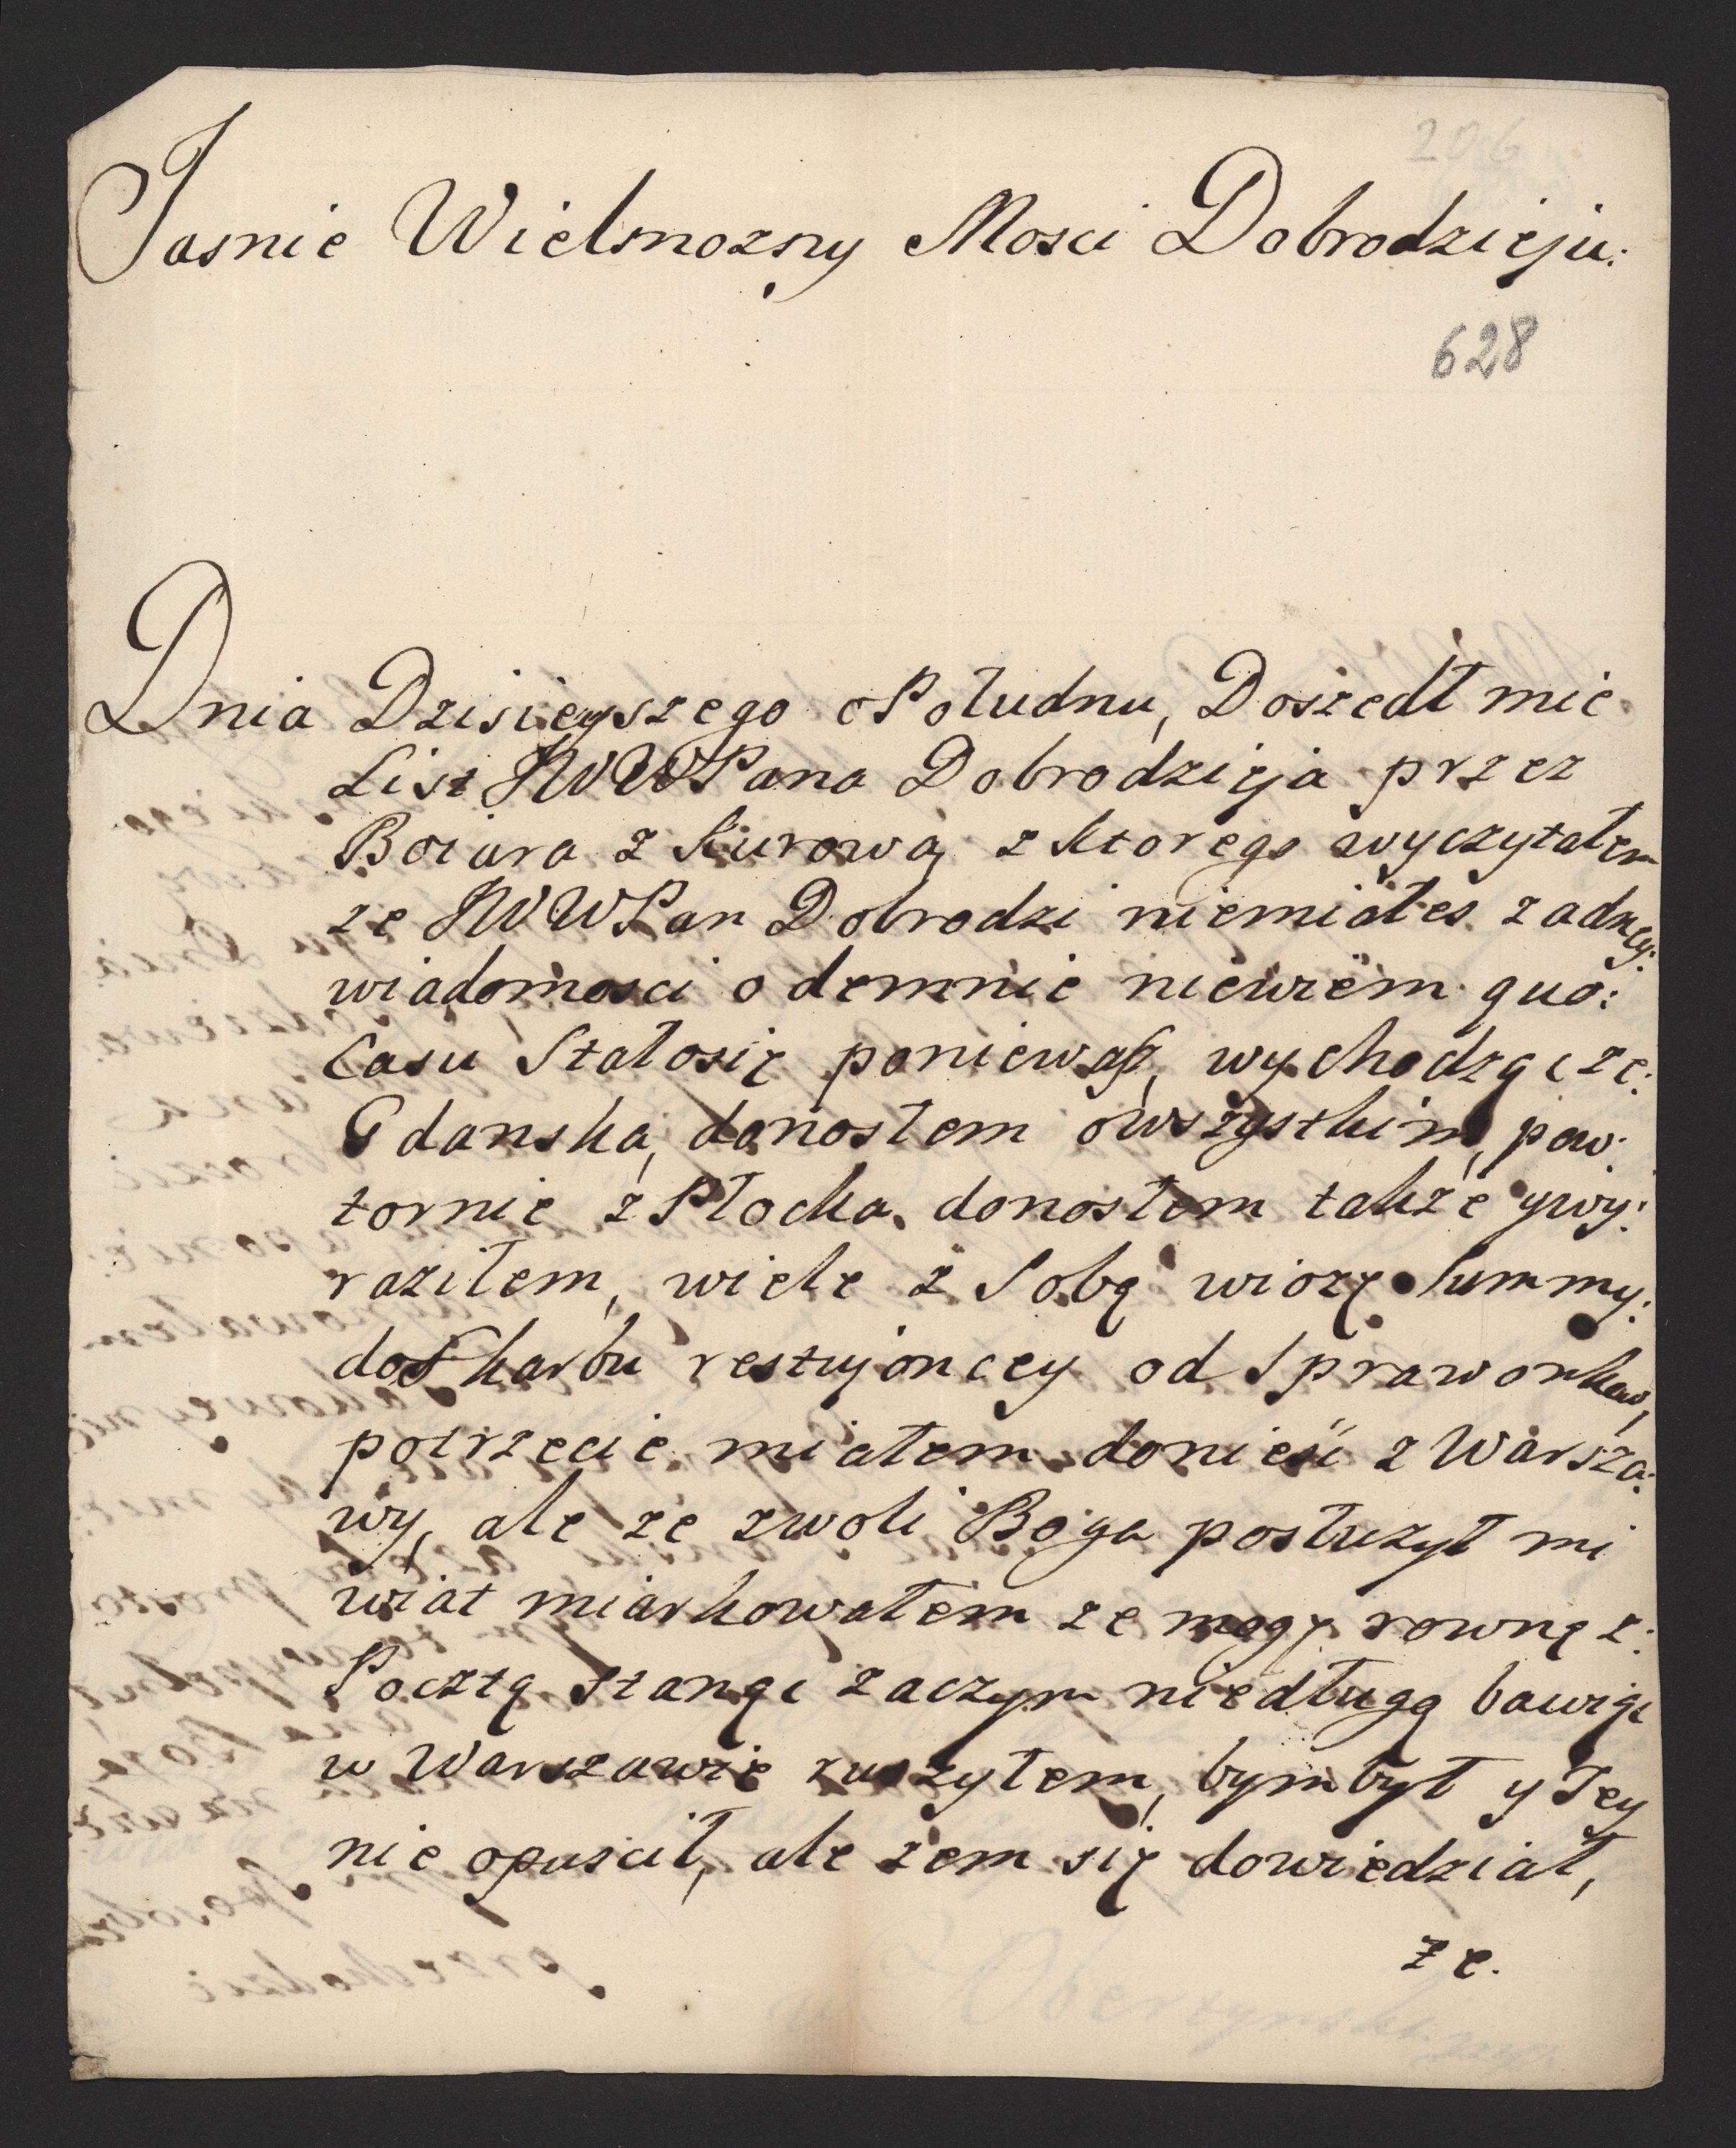 206
Jasnie Wielmozny Mosci Dobrodzieju:
628
Dnia Dzisieyszego o Południu, Doszedł mie
List JWWPana Dobrodzieja przez
Boiara z Kurowa, z ktorego wyczytałem
ze JWWPan Dobrodzi niemiałes zadney:
wiadomosci odemnie niewiem quo:
Casu Stałosię poniewasz, wychodząc ze:
Gdanska, donosłem owszystkim, pow:
tornie z Płocka, donosłem takze ywy:
raziłem, wiele z Sobą wiozę Summy:
do Skarbu restujoncey od Sprawonkow,
potrzecie miałem donieść z Warsza:
wy, ale ze zwoli Boga posłuzył mi
wiat miarkowałem ze mogę rowną z:
Pocztą stanąc zaczym niedługą bawiąc
w Warszawie ruszyłem, bym był y Tey
nie opuscił, ale zem się dowiedział,
ze.